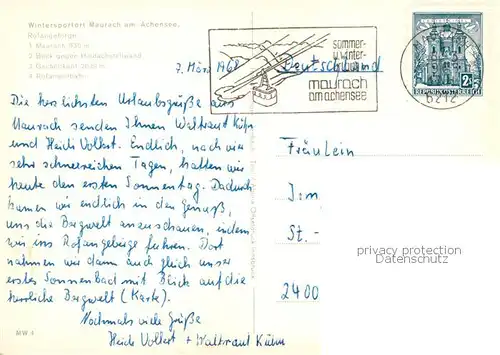 Wintersportort Maurach am Achensee,
Rofangebirge
1. Maurach 930 m
2. Blick gegen Hochschrollwand
4. Rofanseilbahn
7. März 1968
Deutschland
sommer-
u. winter-
maurach
am achensee
REPUBLIK ÖSTERREICH
6212
Die herzlichsten Urlaubsgrüße aus
Maurach senden Ihnen Waltraut Kühn
und Heidi Volkert. Endlich, nach vier
sehr schneereichen Tagen, hatten wir
heute den ersten Sonnentag. Dadurch
kamen wir endlich in den Genuß,
uns die Bergwelt anzuschauen, indem
wir ins Rofangebirge fuhren. Dort
nahmen wir dann auch gleich unser
erstes Sonnenbad mit Blick auf die
herrliche Bergwelt (Karte).
Nochmals viele Grüße
Heidi Volkert + Waltraut Kühn
Fräulein
Irm
St.-
2400
privacy protection
Datenschutz
MW 4